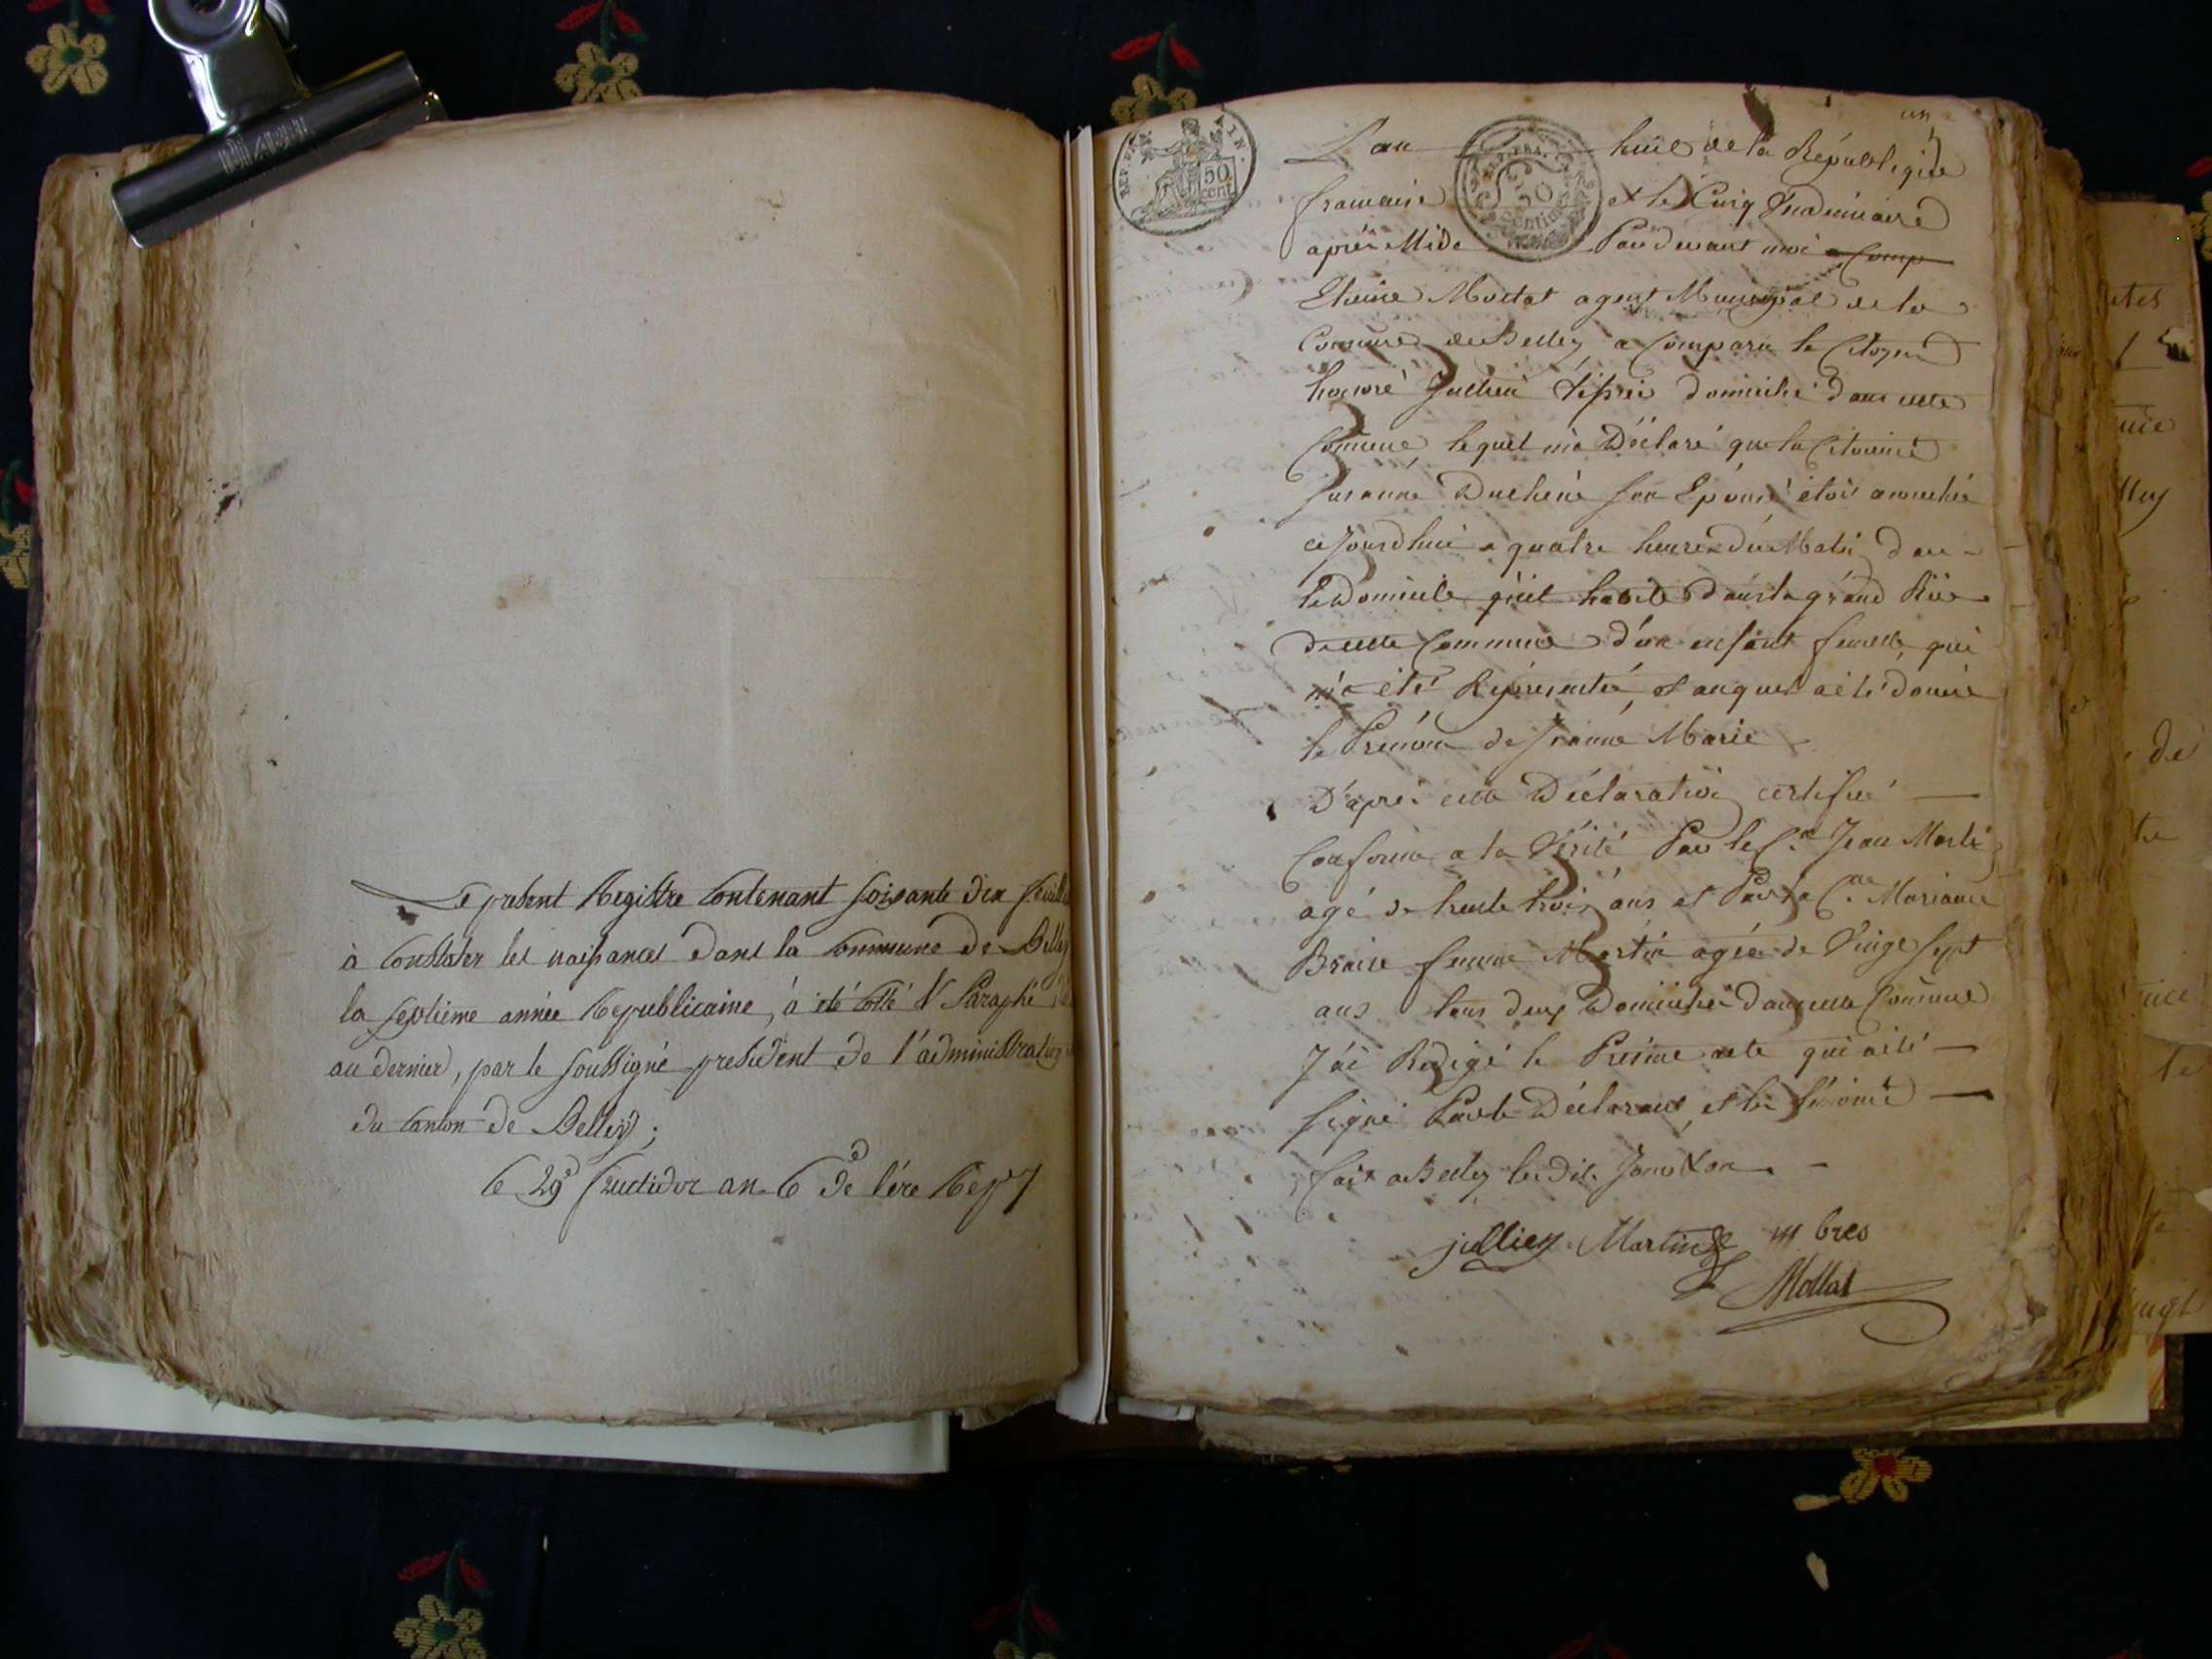 Le present Registre contenant soixante dix feuille
à constater les naissances dans la commune de Belley
la septieme année republicaine, à été Cotté & Paraphé
au dernier, par le soussigné president de l'administration
du canton de Belley ;
Le 29e fructidor an 6 de l'ère Rep
REP. FRA.
50
cent.
REP. FRA.
50
Centimes
un
L'an huit de la République
francaise et le Cinq Vendemiaire
après Midi Pardevant moi Comp
Etienne Mollat agent Municipal de la
Commune de Belley a Comparu le Citoyen
honoré Jullien domicilié dans cette
Commune lequel m'a Déclaré que la Citoienne
Susanne Duchene son Epouse étoit accouchée
cejourdhui a quatre heures du Matin dans
le Domicile qu'il habite dans la grand Rüe
de cette Commune d'un enfant femelle qui
m'a été Représenté, et auquel a été donné
le Prénom de Jeanne Marie
D'après cette Déclaration certifiée
Conforme a la Vérité Par le Cn. Jean Martin
agé de trente trois ans et Par la Cne. Marianne
femme Martin agée de Vingt sept
ans tous deux Domiciliés dans cette Commune
J'ai Redigé le Présent acte qui a été
signé Par le Déclarant et les témoins
fait a Belley les dits Jour & an
jullien Martin m bres
Mollat